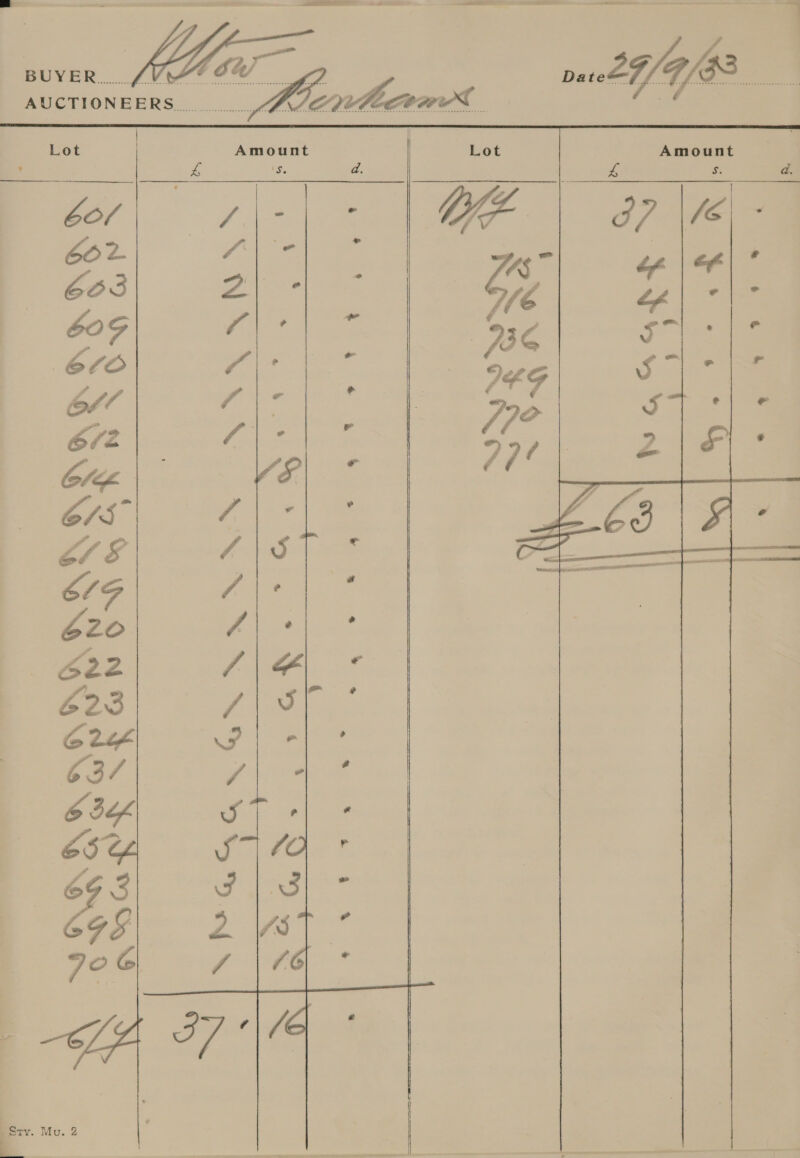 BUYER
Date 29/9/33
AUCTIONEERS Bonhams
Lot Amount Lot Amount
£ s. d. £ s. d.
601 1 - - B/F 37 16 -
602 1 - - 715 4 4 -
603 2 - - 716 4 - -
609 1 - - 736 5 - -
610 1 - - 749 5 - -
611 1 - - 770 5 - -
612 1 - - 771 2 8 -
614 18 - £63 8 -
615 1 - -
618 1 5 -
619 1 - -
620 1 - -
622 1 4 -
623 1 5 -
624 3 - -
631 1 - -
634 5 - -
654 5 10 -
693 3 3 -
698 2 15 -
706 1 16 -
C/F 37 16 -
Sty. Mu. 2